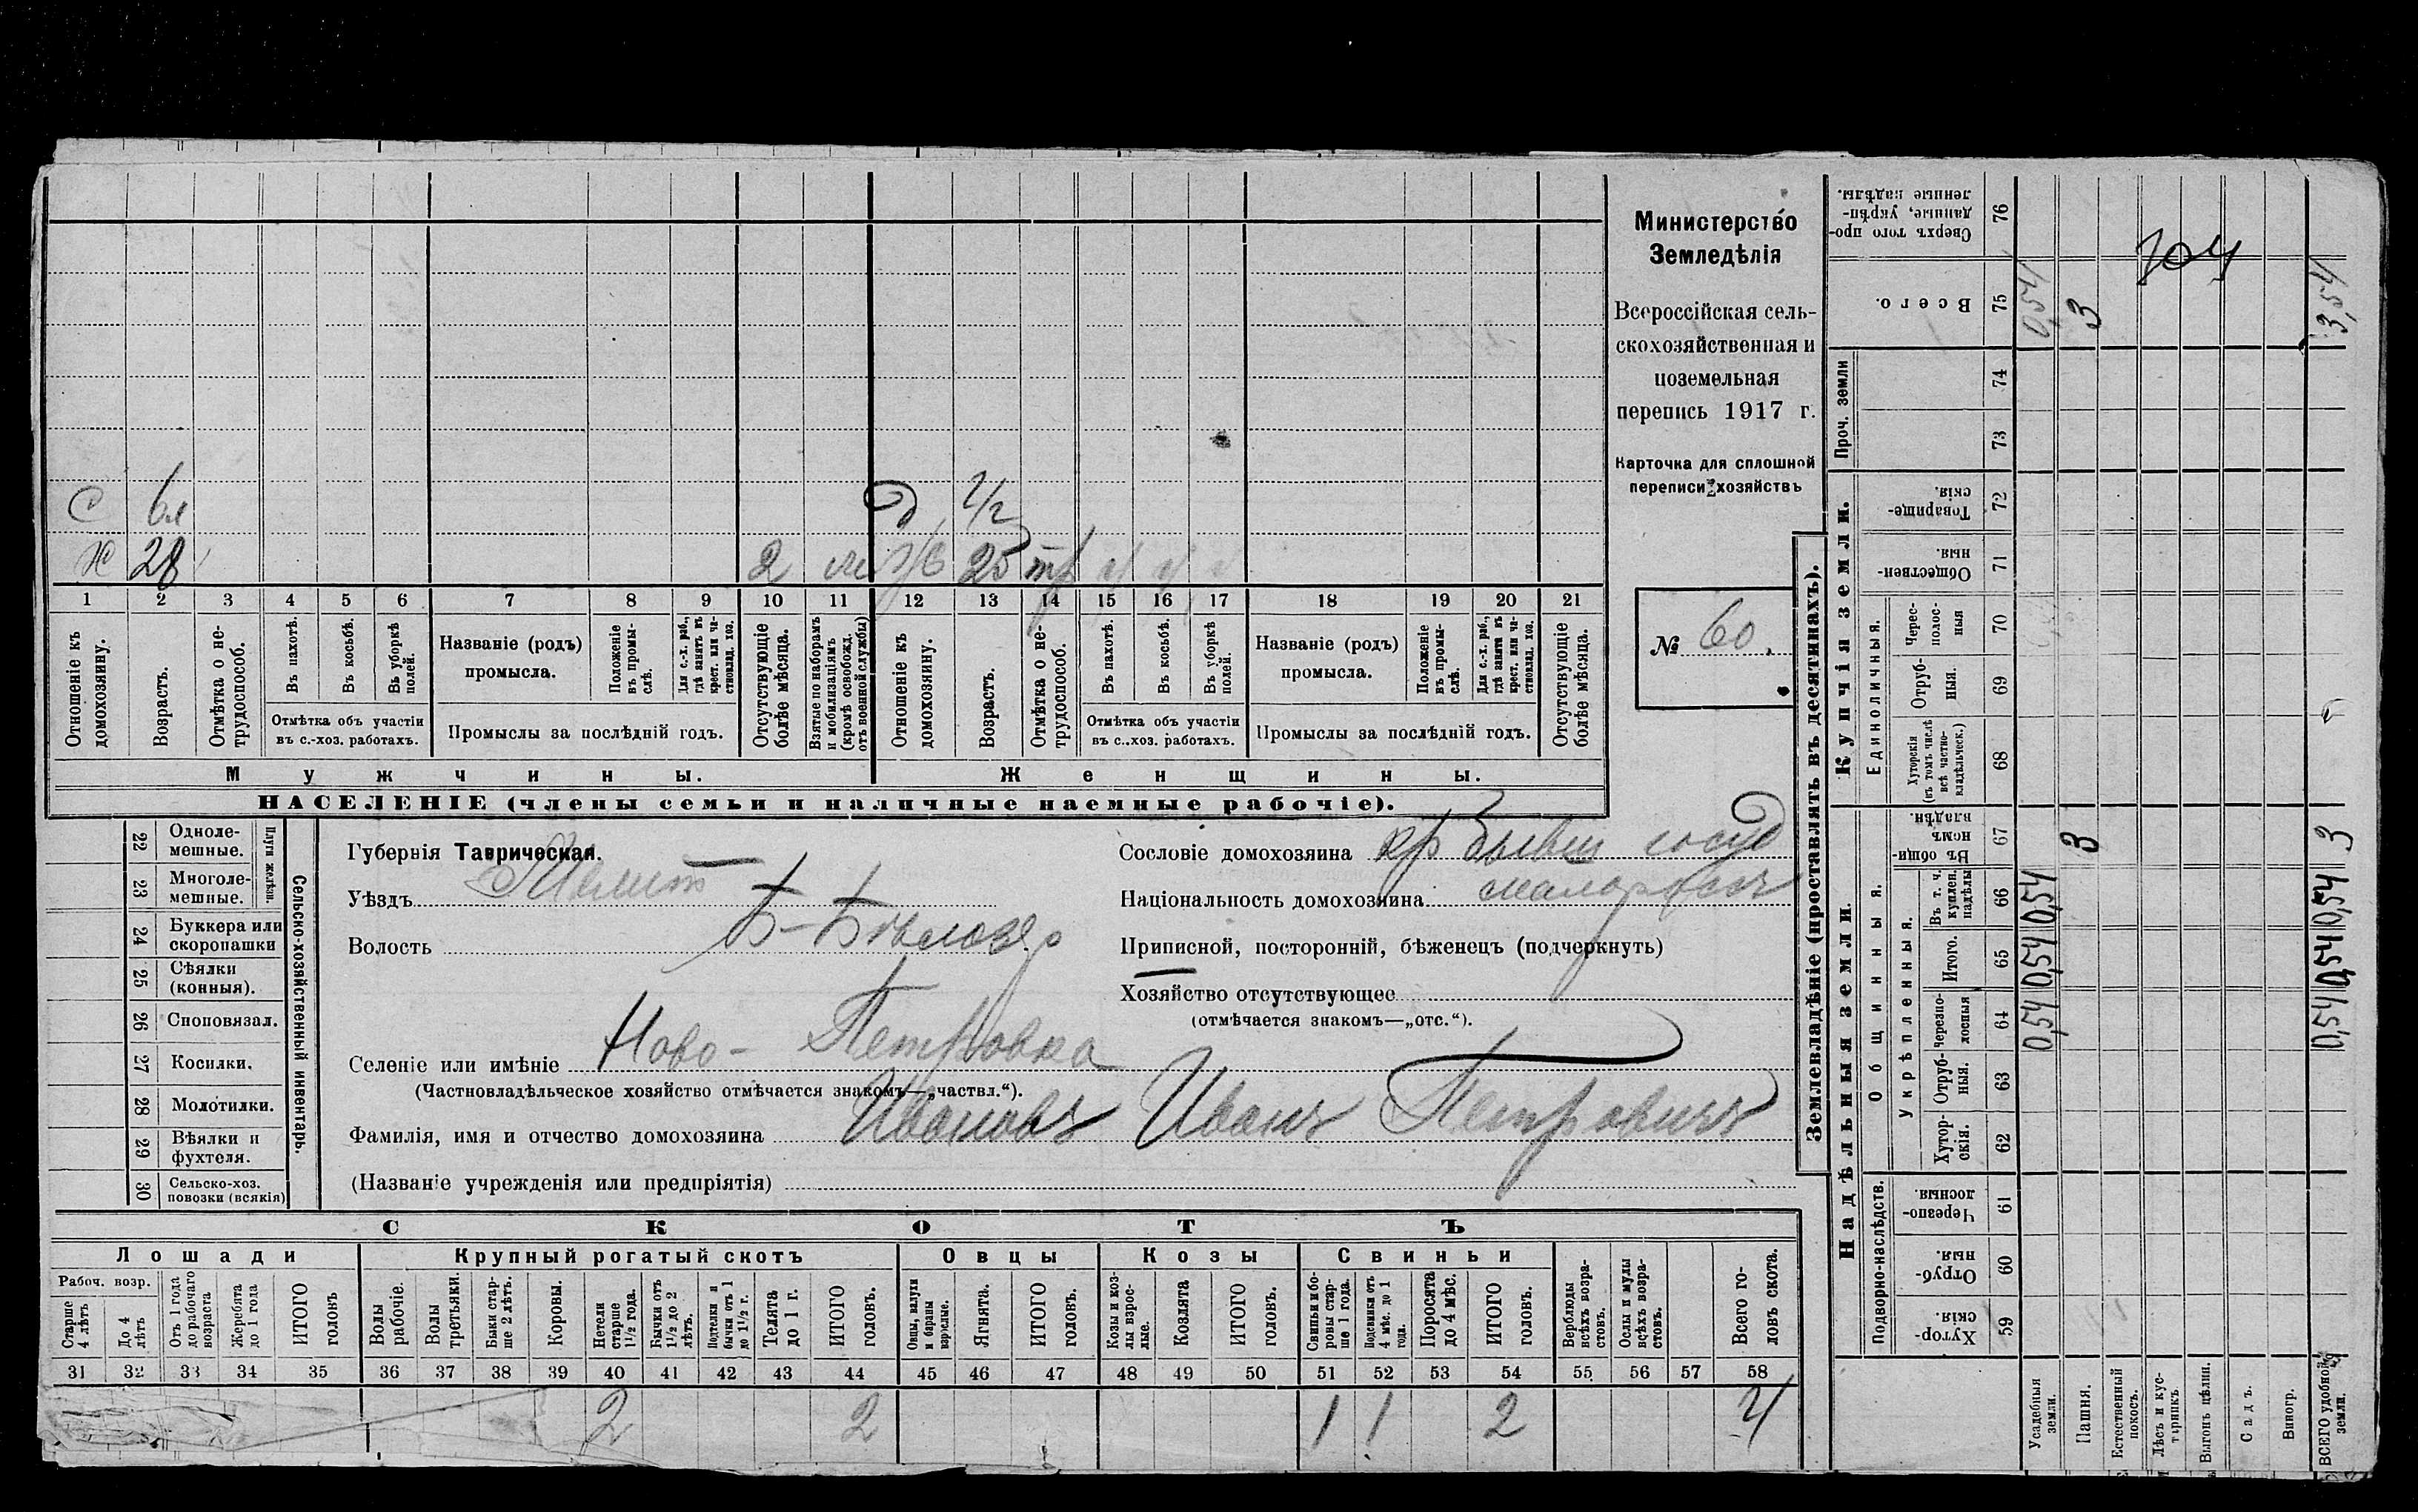 Министерство
Земледѣлія
Всероссійская сель-
скохозяйственная и
поземельная
перепись 1917 г.
Карточка для сплошной
переписи хозяйствъ
№ 60.
С 6л Д
Х 28 2 25 тр
1 2 3 4 5 6 7 8 9 10 11 12 13 14 15 16 17 18 19 20 21
Отношеніе къ домохозяину.
Возрастъ.
Отмѣтка о не-трудоспособ.
Въ пахотѣ.
Въ косьбѣ.
Въ уборкѣ полей.
Отмѣтка объ участіи
въ с.-хоз. работахъ.
Названіе (родъ)
промысла.
Положеніе въ промы-слѣ.
Для с.-х. раб., гдѣ занятъ въ крест. или ча-стновлад. хоз.
Промыслы за послѣдній годъ.
Отсутствующіе болѣе мѣсяца.
Взятые по наборамъ и мобилизаціямъ (кромѣ освобожд. отъ военной службы)
Отношеніе къ домохозяину.
Возрастъ.
Отмѣтка о не-трудоспособ.
Въ пахотѣ.
Въ косьбѣ.
Въ уборкѣ полей.
Отмѣтка объ участіи
въ с.-хоз. работахъ.
Названіе (родъ)
промысла.
Положеніе въ промы-слѣ.
Для с.-х. раб., гдѣ занята въ крест. или ча-стновлад. хоз.
Промыслы за послѣдній годъ.
Отсутствующіе болѣе мѣсяца.
Мужчины. Женщины.
НАСЕЛЕНІЕ (члены семьи и наличные наемные рабочіе).
Сельско-хозяйственный инвентарь.
Плуги желѣзн.
22 Одноле-мешные.
23 Многоле-мешные.
24 Буккера или скоропашки
25 Сѣялки (конныя).
26 Сноповязал.
27 Косилки.
28 Молотилки.
29 Вѣялки и фухтеля.
30 Сельско-хоз. повозки (всякія)
Губернія Таврическая.
Уѣздъ Мелит
Волость Б-Бѣлозер
Селеніе или имѣніе Ново-Петровка
(Частновладѣльческое хозяйство отмѣчается знакомъ—„частвл.“).
Фамилія, имя и отчество домохозяина Ивановъ Иванъ Петровичъ
(Названіе учрежденія или предпріятія)
Сословіе домохозяина кр бывш госуд
Національность домохозяина малороссъ
Приписной, посторонній, бѣженецъ (подчеркнуть)
Хозяйство отсутствующее
(отмѣчается знакомъ—„отс.“).
СКОТЪ
Лошади Крупный рогатый скотъ Овцы Козы Свиньи
Рабоч. возр.
Старше 4 лѣтъ
До 4 лѣтъ
Отъ 1 года до рабочаго возраста
Жеребята до 1 года
ИТОГО головъ
Волы рабочіе.
Волы третьяки.
Быки стар-ше 2 лѣтъ.
Коровы.
Нетели старше 1½ года.
Бычки отъ 1½ до 2 лѣтъ.
Подтелки и бычки отъ 1 до 1½ г.
Телята до 1 г.
ИТОГО головъ.
Овцы, валухи и бараны взрослые.
Ягнята.
ИТОГО головъ.
Козы и коз-лы взрос-лые.
Козлята
ИТОГО головъ.
Свиньи и бо-ровы стар-ше 1 года.
Подсвинки отъ 4 мѣс. до 1 года.
Поросята до 4 мѣс.
ИТОГО головъ.
Верблюды всѣхъ возра-стовъ.
Ослы и мулы всѣхъ возра-стовъ.
Всего го-ловъ скота.
31 32 33 34 35 36 37 38 39 40 41 42 43 44 45 46 47 48 49 50 51 52 53 54 55 56 57 58
2 2 1 1 2 4
Землевладѣніе (проставлять въ десятинахъ).
Надѣльныя земли. Купчія земли. Проч. земли
Подворно-наслѣдств. Общинныя. Единоличныя.
Укрѣпленныя.
Хутор-скія. 59
Отруб-ныя. 60
Черезпо-лосныя. 61
Хутор-скія. 62
Отруб-ныя. 63
Черезпо-лосныя 64
Итого. 65
Въ т. ч. куплен. надѣлы 66
Въ общин-номъ владѣн. 67
Хуторскія (въ томъ числѣ всѣ частно-владѣльческ.) 68
Отруб-ныя. 69
Черес-полос-ныя 70
Обществен-ныя. 71
Товарище-скія. 72
73
74
Всего. 75
Сверхъ того про-данные, укрѣп-ленные надѣлы. 76
Усадебныя земли. 0,54 0,54 0,54 0,54
Пашня. 3 3
Естественный покосъ.
Лѣсъ и кус-тарникъ
Выгонъ цѣлин.
Садъ.
Виногр.
ВСЕГО удобной земли. 0,54 0,54 0,54 3 3,54